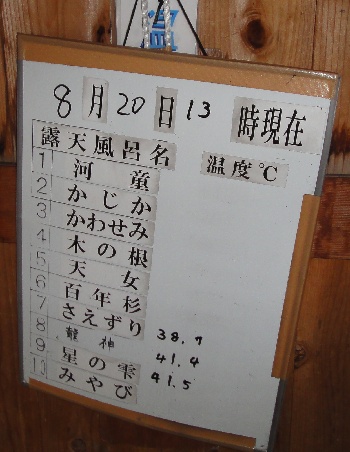 8月20日13時現在
露天風呂名 温度℃
1 河童
2 かじか
3 かわせみ
4 木の根
5 天女
6 百年杉
7 さえずり 38.7
8 龍神 41.4
9 星の雫 41.5
13 みやび